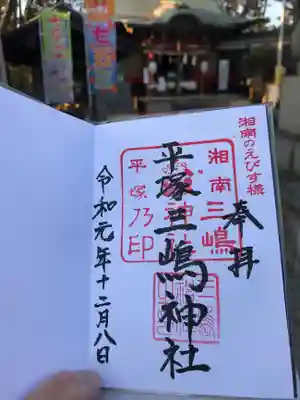 湘南のえびす様
奉拝
湘南三嶋
平塚乃印
平塚三嶋神社
令和元年十二月八日
七五三